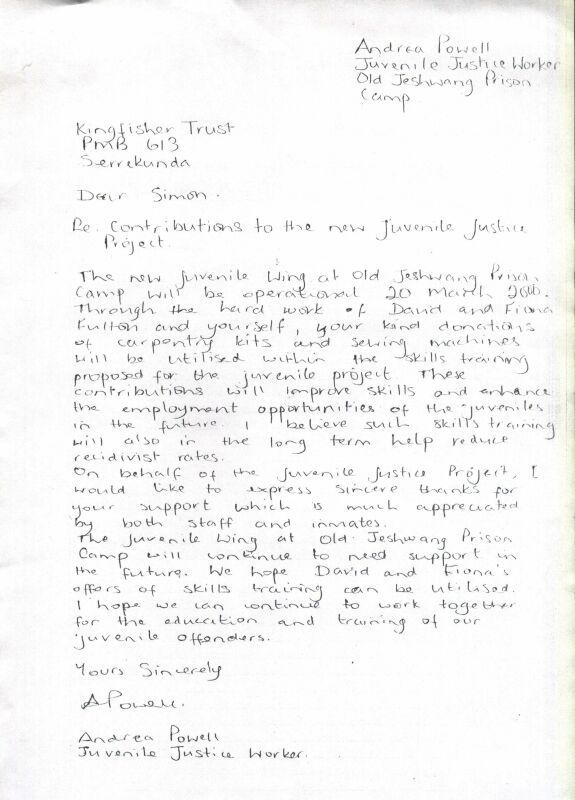 Andrea Powell
Juvenile Justice Worker
Old Jeshwang Prison
Camp
Kingfisher Trust
PMB 613
Serrekunda
Dear Simon.
Re. Contributions to the new Juvenile Justice
Project.
The new Juvenile Wing at Old Jeshwang Prison
Camp will be operational 20 March 2000.
Through the hard work of David and Fiona
Fulton and yourself, your kind donations
of carpentry kits and sewing machines
will be utilised within the skills training
proposed for the juvenile project. These
contributions will improve skills and enhance
the employment opportunities of the juveniles
in the future. I believe such skills training
will also in the long term help reduce
recidivist rates.
On behalf of the Juvenile Justice Project, I
would like to express sincere thanks for
your support which is much appreciated
by both staff and inmates.
The Juvenile Wing at Old Jeshwang Prison
Camp will continue to need support in
the future. We hope David and Fiona's
offers of skills training can be utilised.
I hope we can continue to work together
for the education and training of our
juvenile offenders.
Yours Sincerely
APowell.
Andrea Powell
Juvenile Justice Worker.